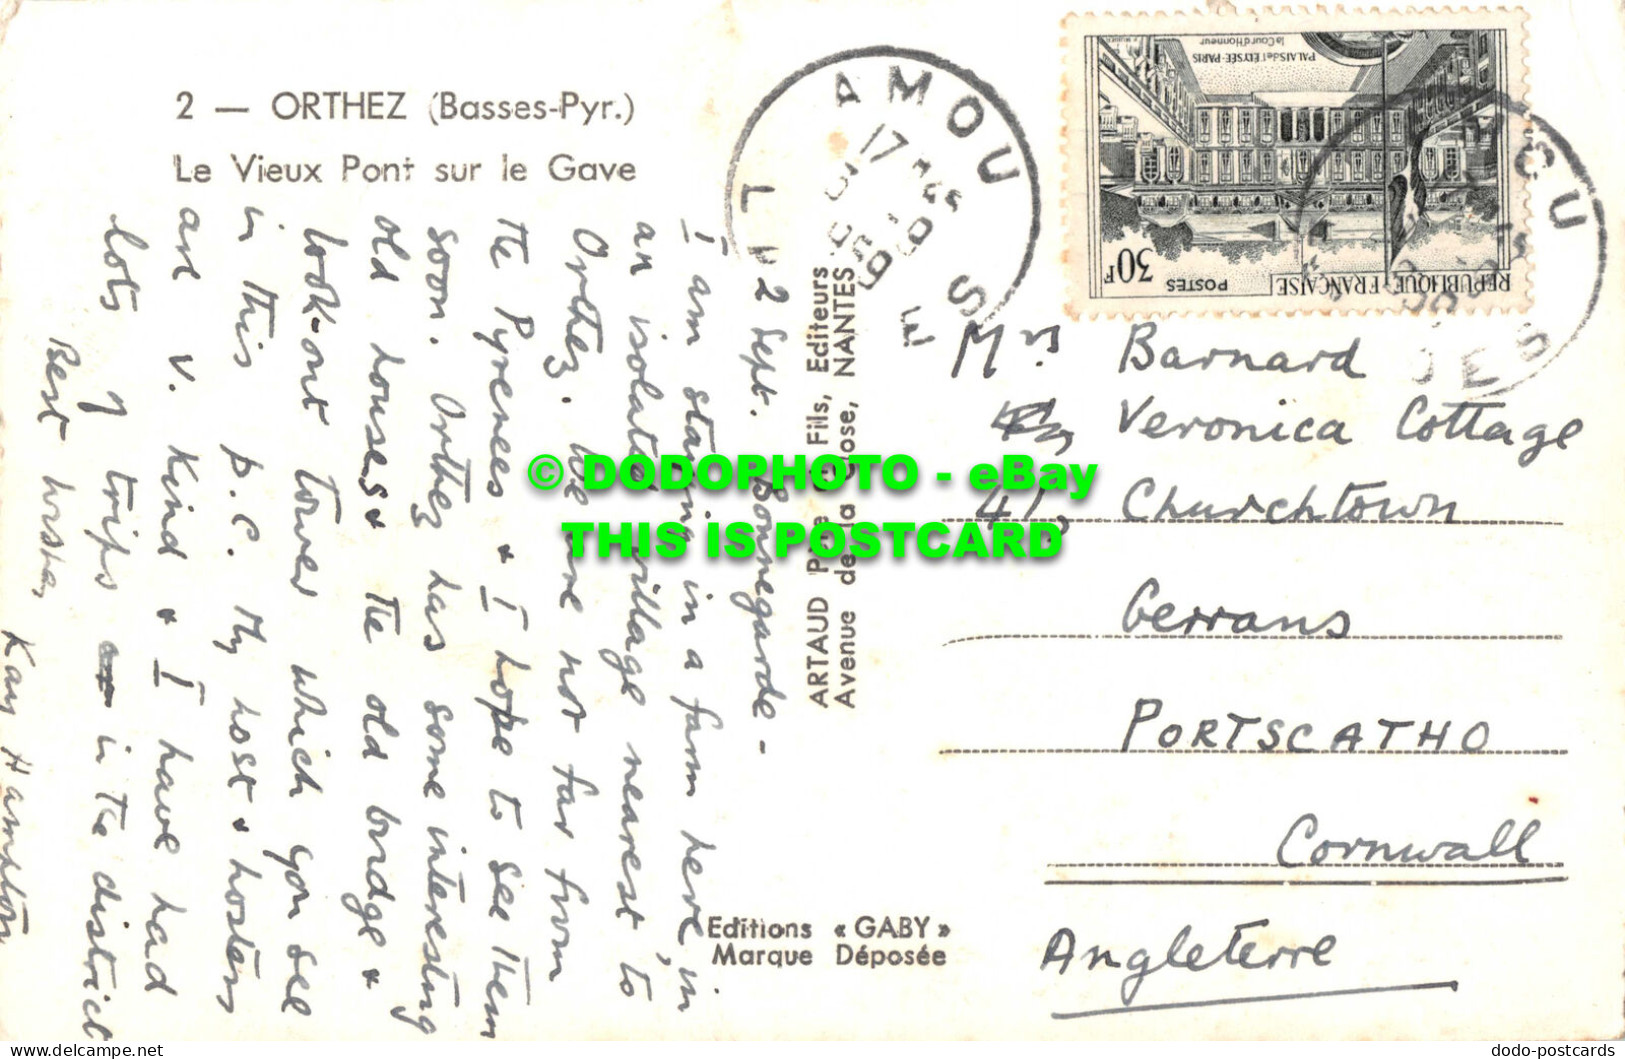 2 — ORTHEZ (Basses-Pyr.)
Le Vieux Pont sur le Gave
2 Sept. Bonnegarde -
I am staying in a farm here, in
an isolated village nearest to
Orthez. We are not far from
the Pyrenees & I hope to see them
soon. Orthez has some interesting
old houses & the old bridge &
look-out tower which you see
in this p.c. My host & hostess
are v. kind & I have had
lots of trips in the district
Best wishes,
Kay Hamilton
ARTAUD Père & Fils, Editeurs
Avenue de la Close, NANTES
Editions « GABY »
Marque Déposée
AMOU
LANDES
17 45
REPUBLIQUE-FRANÇAISE
POSTES
30F
PALAIS de l'ELYSÉE-PARIS
la Cour d'Honneur
Mrs Barnard
Veronica Cottage
41, Churchtown
Gerrans
PORTSCATHO
Cornwall
Angleterre
© DODOPHOTO - eBay
THIS IS POSTCARD
dodo-postcards